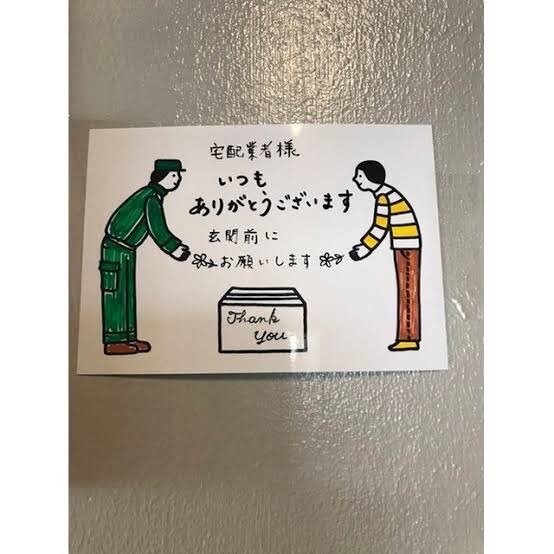 宅配業者様
いつも
ありがとうございます
玄関前に
お願いします
Thank
You